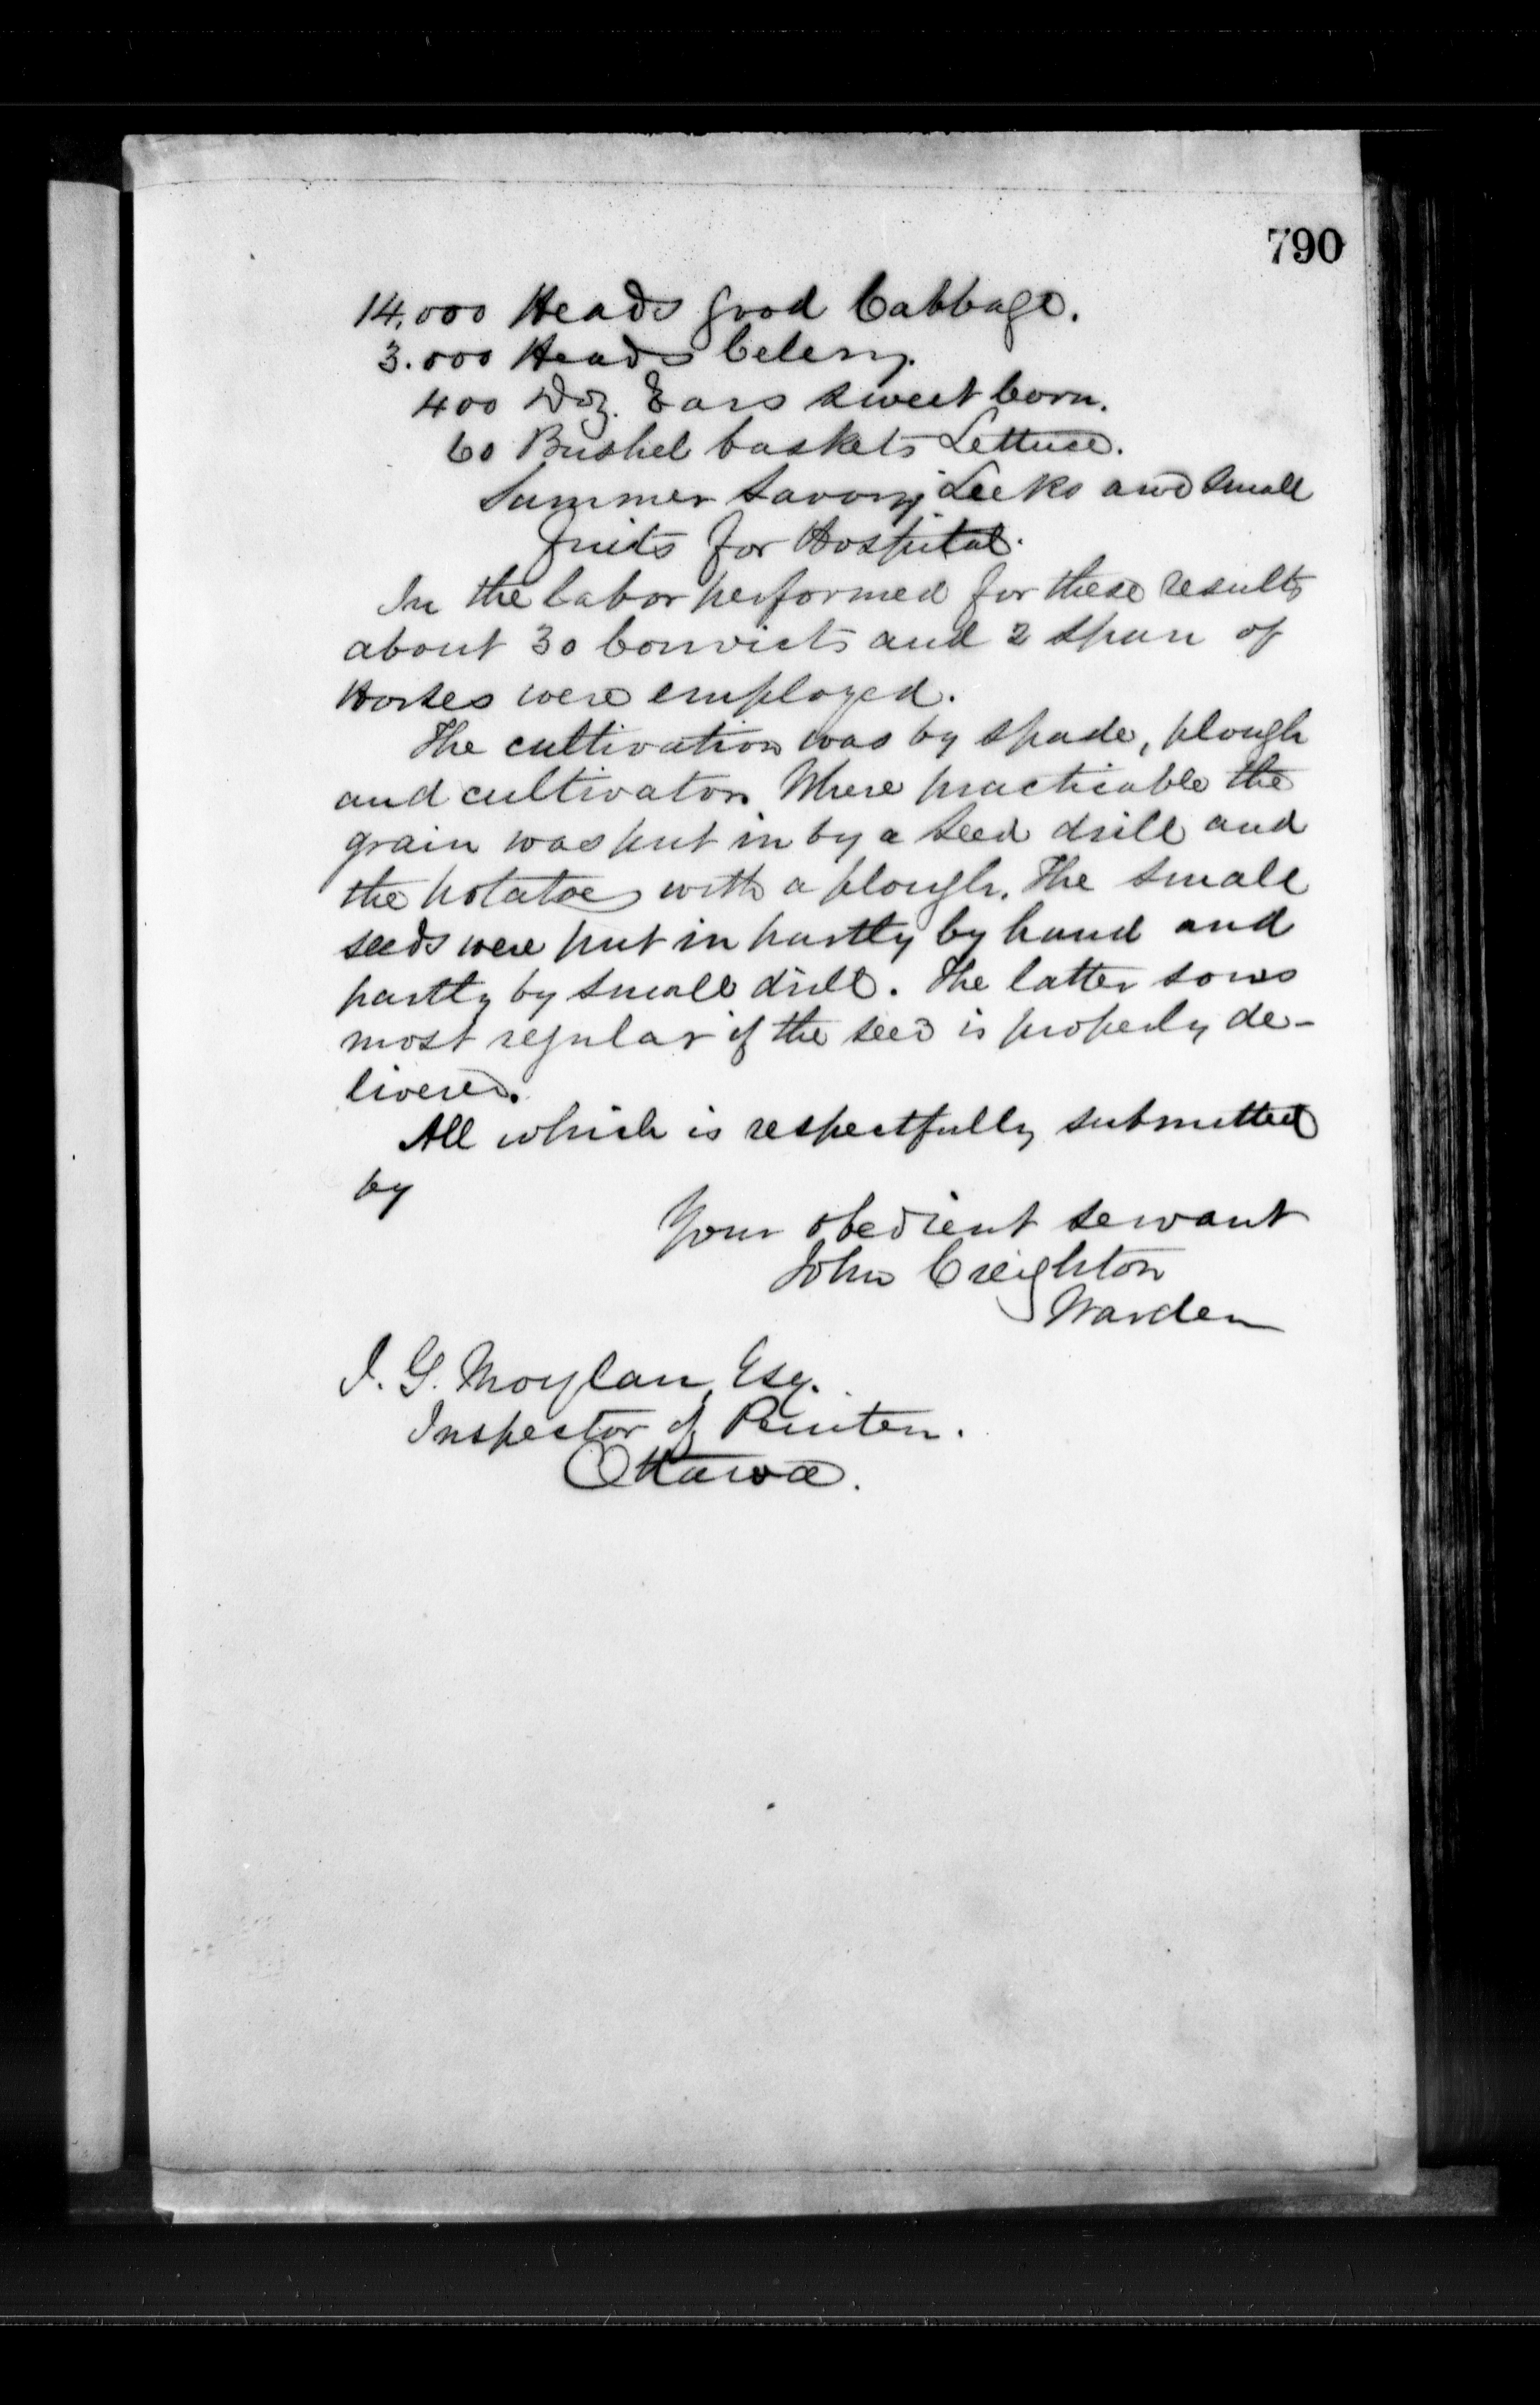 790
14.000 Heads good Cabbage.
3.000 Heads Celery.
400 Doz. Ears sweet Corn.
60 Bushel baskets Lettuce.
Summer Savory, Leeks and small
fruits for Hospital.
In the labor performed for these results
about 30 Convicts and 2 span of
Horses were employed.
The cultivation was by spade, plough
and cultivator. Where practicable the
grain was put in by a seed drill and
the potatoes with a plough. The small
seeds were put in partly by hand and
partly by small drill. The latter sows
most regular if the seed is properly de-
livered.
All which is respectfully submitted
by
Your obedient servant
John Creighton
Warden
J. G. Moylan, Esq.
Inspector of Peniten.
Ottawa.